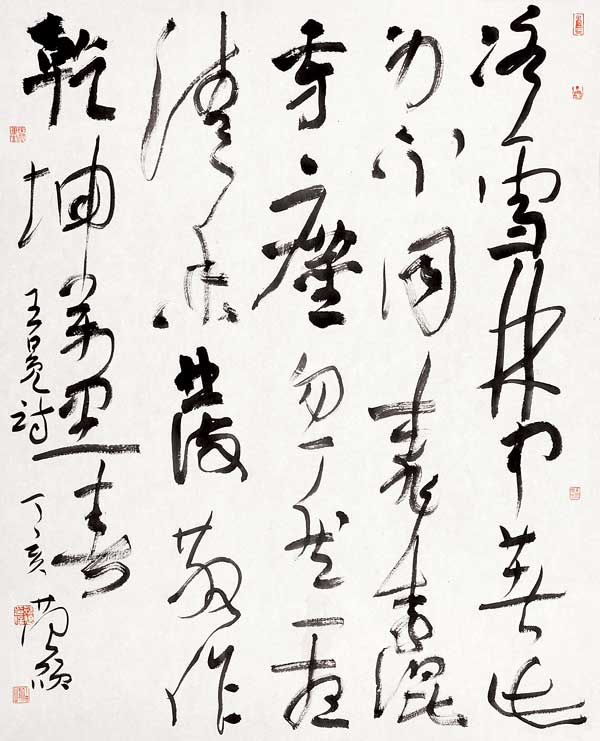 冰雪林中著此
身不同桃李混
芳塵忽然一夜
清香發散作
乾坤萬里春
王冕詩 丁亥